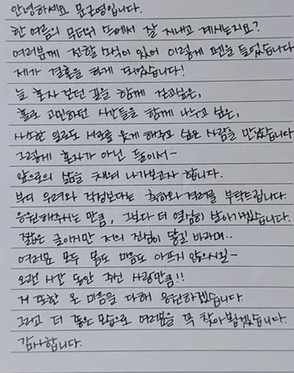 안녕하세요 문근영입니다.
한 여름의 무더위 속에서 잘 지내고 계세요?
여러분께 전할 소식이 있어 이렇게 펜을 들었습니다
제가 결혼을 하게 되었습니다!
늘 혼자 걷던 길을 함께 걷고싶은,
홀로 고민하던 시간들을 함께 나누고 싶은,
사소한 일로도 서로를 웃게 해주고 싶은 사람을 만났습니다
그렇게 혼자가 아닌 둘이서~
앞으로의 삶을 채워 나가보고자 합니다.
부디 우려와 걱정보다는 축하와 격려를 부탁드립니다.
응원해주시는 만큼, 그보다 더 열심히 살아가겠습니다.
짧은 글이지만 저의 진심이 닿길 바라며..
여러분 모두 몸도 마음도 아프지 않으시길~
오랜 시간 동안 주신 사랑만큼!!
저 또한 온 마음을 다해 응원하겠습니다.
그리고 더 좋은 모습으로 여러분을 꼭 찾아뵙겠습니다.
감사합니다.